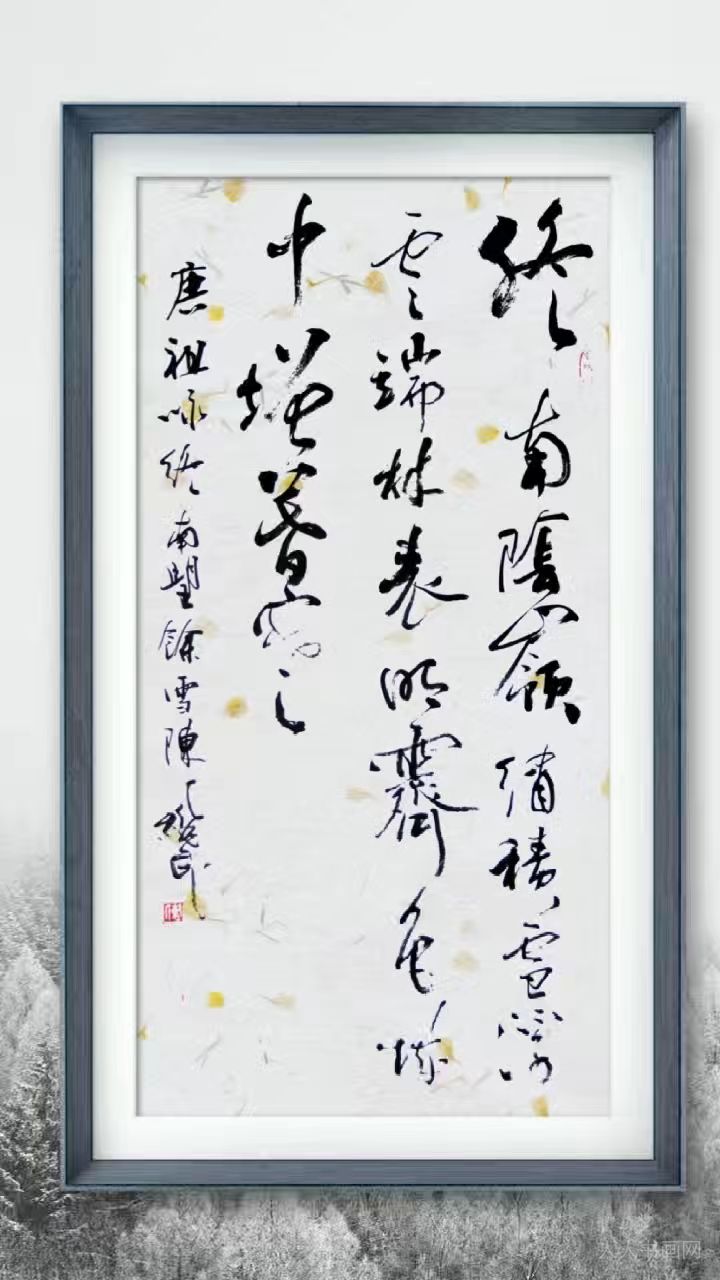 終南陰嶺積雪浮
雲端林表明霽色城
中增暮寒
唐祖咏終南望餘雪陳
人人书画网